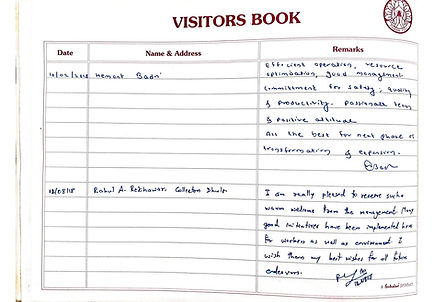 VISITORS BOOK
Date Name & Address Remarks
Efficient operation, resource
optimization, good management
10/02/2018 Hemant Badri
commitment for safety, quality
& productivity. Passionate team
& positive attitude
All the best for next phase of
transformation & expansion.
Rahul A. Rekhawar. Collector Dhule
I am really pleased to receive such a
warm welcome from the management. Many
good initiatives have been implemented here
for workers as well as environment. I
wish them my best wishes for all future
endeavors.